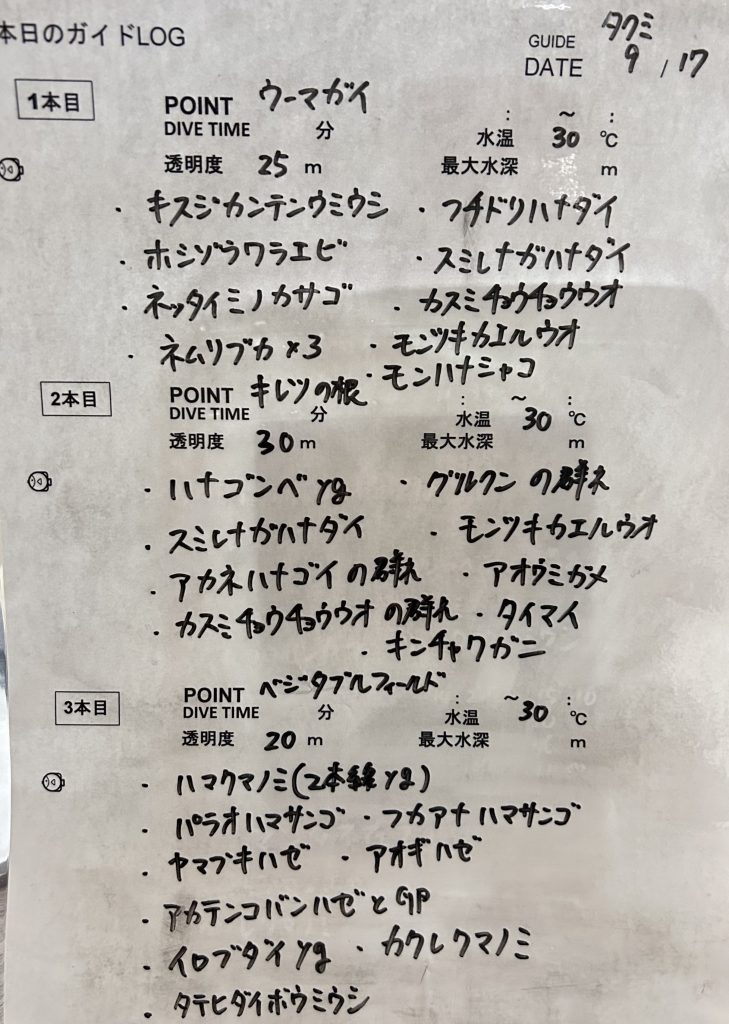 本日のガイドLOG
GUIDE タクミ
DATE 9 / 17
1本目 POINT ウーマガイ : ～ :
DIVE TIME 分 水温 30 ℃
透明度 25 m 最大水深 m
・キスジカンテンウミウシ ・フチドリハナダイ
・ホシゾラワラエビ ・スミレナガハナダイ
・ネッタイミノカサゴ ・カスミチョウチョウウオ
・ネムリブカ×3 ・モンツキカエルウオ
・モンハナシャコ
2本目 POINT キレツの根 : ～ :
DIVE TIME 分 水温 30 ℃
透明度 30 m 最大水深 m
・ハナゴンベyg ・グルクンの群れ
・スミレナガハナダイ ・モンツキカエルウオ
・アカネハナゴイの群れ ・アオウミガメ
・カスミチョウチョウウオの群れ ・タイマイ
・キンチャクガニ
3本目 POINT ベジタブルフィールド : ～ :
DIVE TIME 分 水温 30 ℃
透明度 20 m 最大水深 m
・ハマクマノミ(2本線yg)
・パラオハマサンゴ ・フカアナハマサンゴ
・ヤマブキハゼ ・アオギハゼ
・アカテンコバンハゼとGP
・イロブダイyg ・カクレクマノミ
・タテヒダイボウミウシ